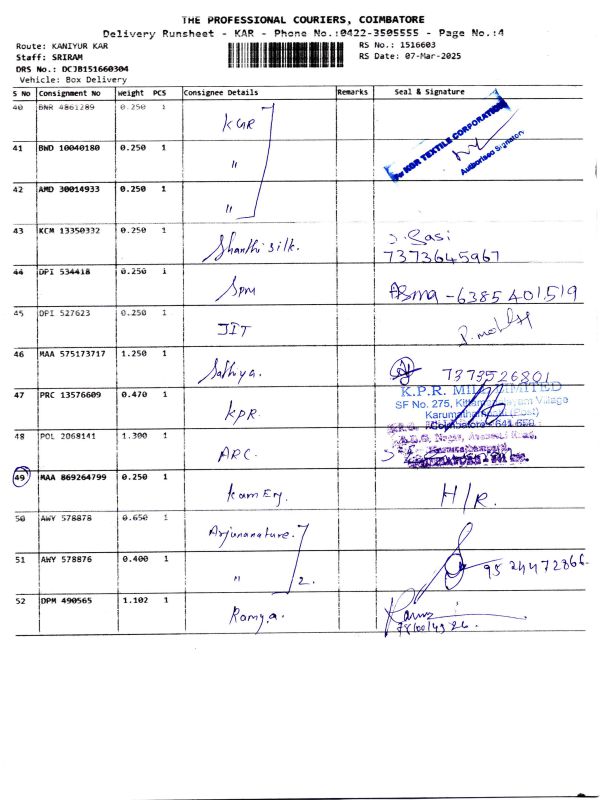 THE PROFESSIONAL COURIERS, COIMBATORE
Delivery Runsheet - KAR - Phone No.:0422-3505555 - Page No.:4
Route: KANIYUR KAR
RS No.: 1516603
Staff: SRIRAM
RS Date: 07-Mar-2025
DRS No.: DCJB151660304
Vehicle: Box Delivery
S No Consignment No Weight PCS Consignee Details Remarks Seal & Signature
40 BNR 4861289 0.250 1 KGR
For KGR TEXTILE CORPORATION
Authorised Signatory
41 BWD 10040180 0.250 1 "
42 AMD 30014933 0.250 1 "
43 KCM 13350332 0.250 1 Shanthi silk. J. Sasi
7373645967
44 DPI 534418 0.250 1 Spm Asma -6385401519
45 DPI 527623 0.250 1 JIT
46 MAA 575173717 1.250 1 Sathya. 7373526801
47 PRC 13576609 0.470 1 KPR.
K.P.R. MILL LIMITED
SF No. 275, Village
(Post)
Coimbatore - 641 659
48 POL 2068141 1.300 1 ARC.
Nagar, Road,
49 MAA 869264799 0.250 1 H/R.
50 AWY 578878 0.650 1 Arjunanature.
51 AWY 578876 0.400 1 " 2. 9524472866.
52 DPM 490565 1.102 1 Ramya.